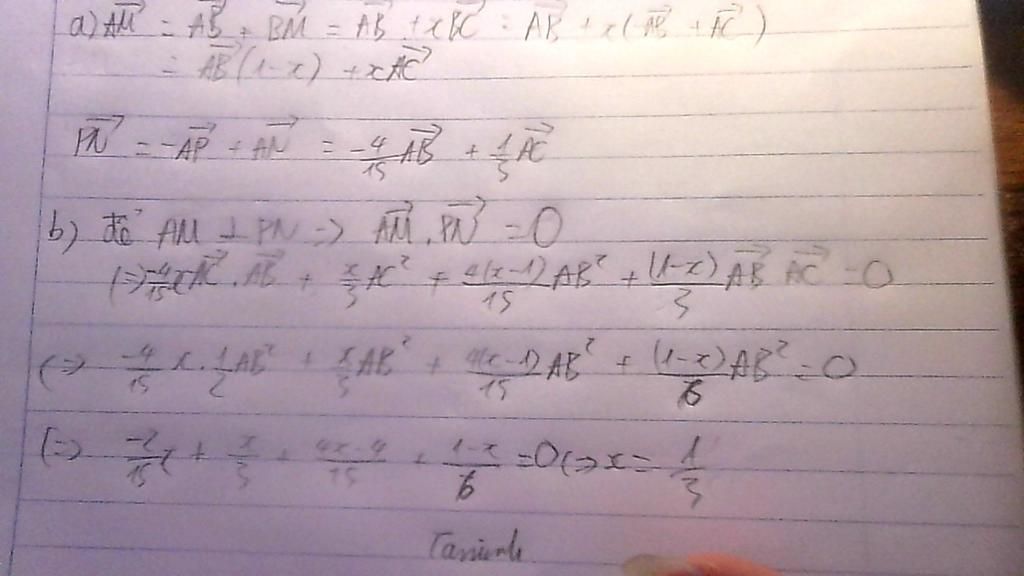 a) AM→ = AB→ + BM→ = AB→ + xBC→ = AB→ + x(AB→ + AC→)
= AB→(1-x) + xAC→
PN→ = -AP→ + AN→ = -4/15 AB→ + 1/3 AC→
b) để AM ⊥ PN => AM→ . PN→ = 0
(=> -4/15 x AC→ . AB→ + x/3 AC² + 4(x-1)/15 AB² + (1-x)/3 AB→ AC→ = 0
(=> -4/15 x . 1/2 AB² + x/3 AB² + 4(x-1)/15 AB² + (1-x)/6 AB² = 0
(=> -2/15 x + x/3 + 4x-4/15 + 1-x/6 = 0 (=> x = 1/3